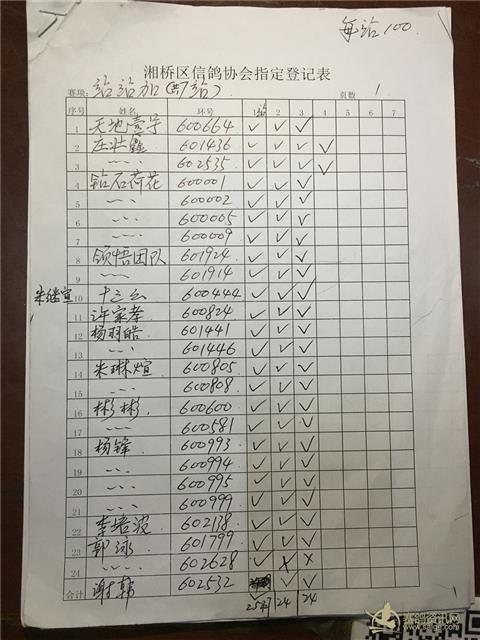 每站100
湘桥区信鸽协会指定登记表
赛项: 站站加(共7站) 页数 1
序号 姓名 环号 1站 2 3 4 5 6 7
1 天地壹宇 600664 ✓ ✓ ✓
2 庄壮鑫 601436 ✓ ✓ ✓ ✓
3 〃 602535 ✓ ✓ ✓ ✓
4 钻石荷花 600001 ✓ ✓ ✓
5 〃 600002 ✓ ✓ ✓
6 〃 600005 ✓ ✓ ✓
7 〃 600009 ✓ ✓ ✓
8 领悟团队 601924 ✓ ✓ ✓
9 〃 601914 ✓ ✓ ✓
朱继宣 10 十三公 600444 ✓ ✓ ✓
11 许家孝 600824 ✓ ✓ ✓
12 杨羽皓 601441 ✓ ✓ ✓
13 〃 601446 ✓ ✓ ✓
14 朱琳煊 600805 ✓ ✓ ✓
15 〃 600808 ✓ ✓ ✓
16 彬彬 600600 ✓ ✓ ✓
17 〃 600581 ✓ ✓ ✓
18 杨锋 600993 ✓ ✓ ✓
19 〃 600994 ✓ ✓ ✓
20 〃 600995 ✓ ✓ ✓
21 〃 600999 ✓ ✓ ✓
22 李培波 602138 ✓ ✓ ✓
23 郭泳 601799 ✓ ✓ ✓
24 〃 602628 ✓ ✗ ✗
合计 谢韩 602532 ✓ ✓ ✓
25 24 24